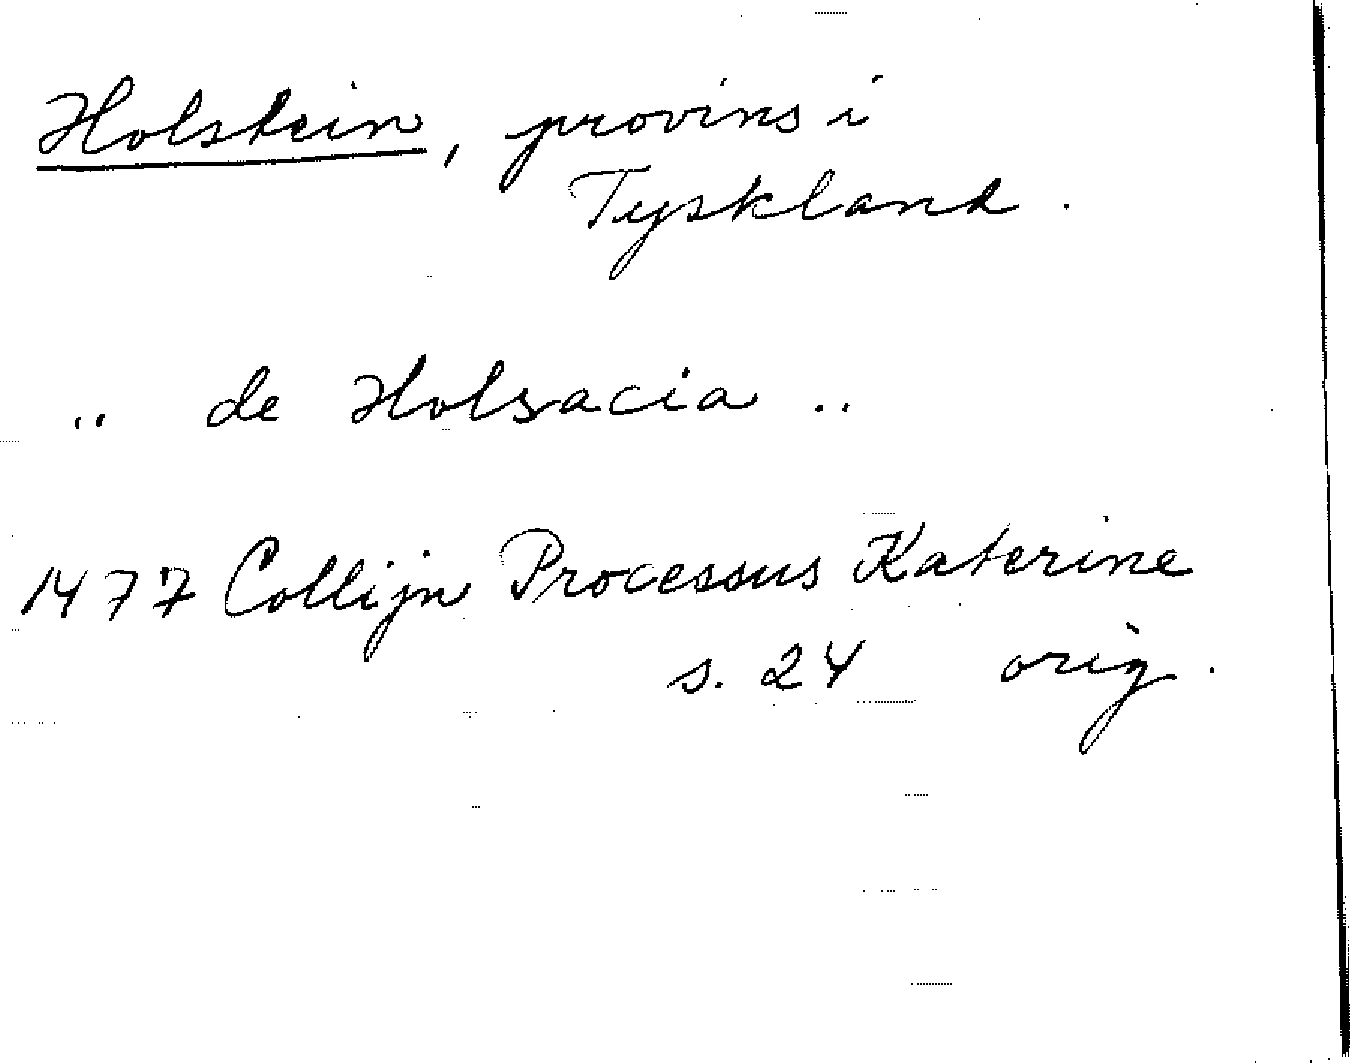 Holstein, provins i
Tyskland.
.. de Holsacia ..
1477 Collijn Processus Katerine
s. 24 orig.